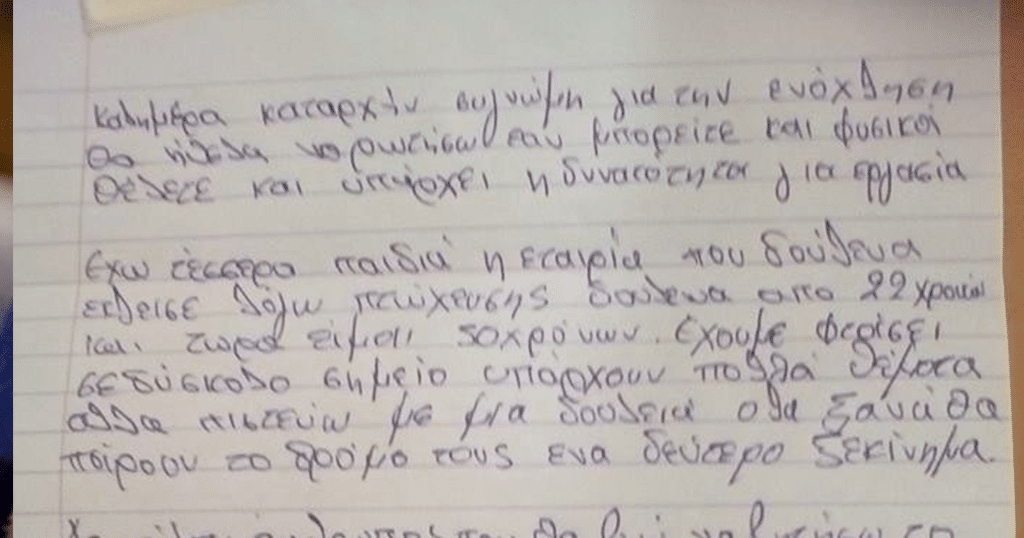 Καλημέρα καταρχήν συγνώμη για την ενόχληση
θα ήθελα να ρωτήσω εαν μπορείτε και φυσικοί
θέλετε και υπάρχει η δυνατότητα για εργασία
Έχω τέσσερα παιδιά η εταιρία που δούλευα
έκλεισε λόγω πτώχευσης δούλευα απο 22 χρονών
και τώρα είμαι 50 χρόνων. Έχουμε φτάσει
σε δύσκολο σημείο υπάρχουν πολλά θέματα
αλλα πιστεύω με μια δουλειά ολα ξανά θα
πάρουν το δρόμο τους ενα δεύτερο ξεκίνημα.